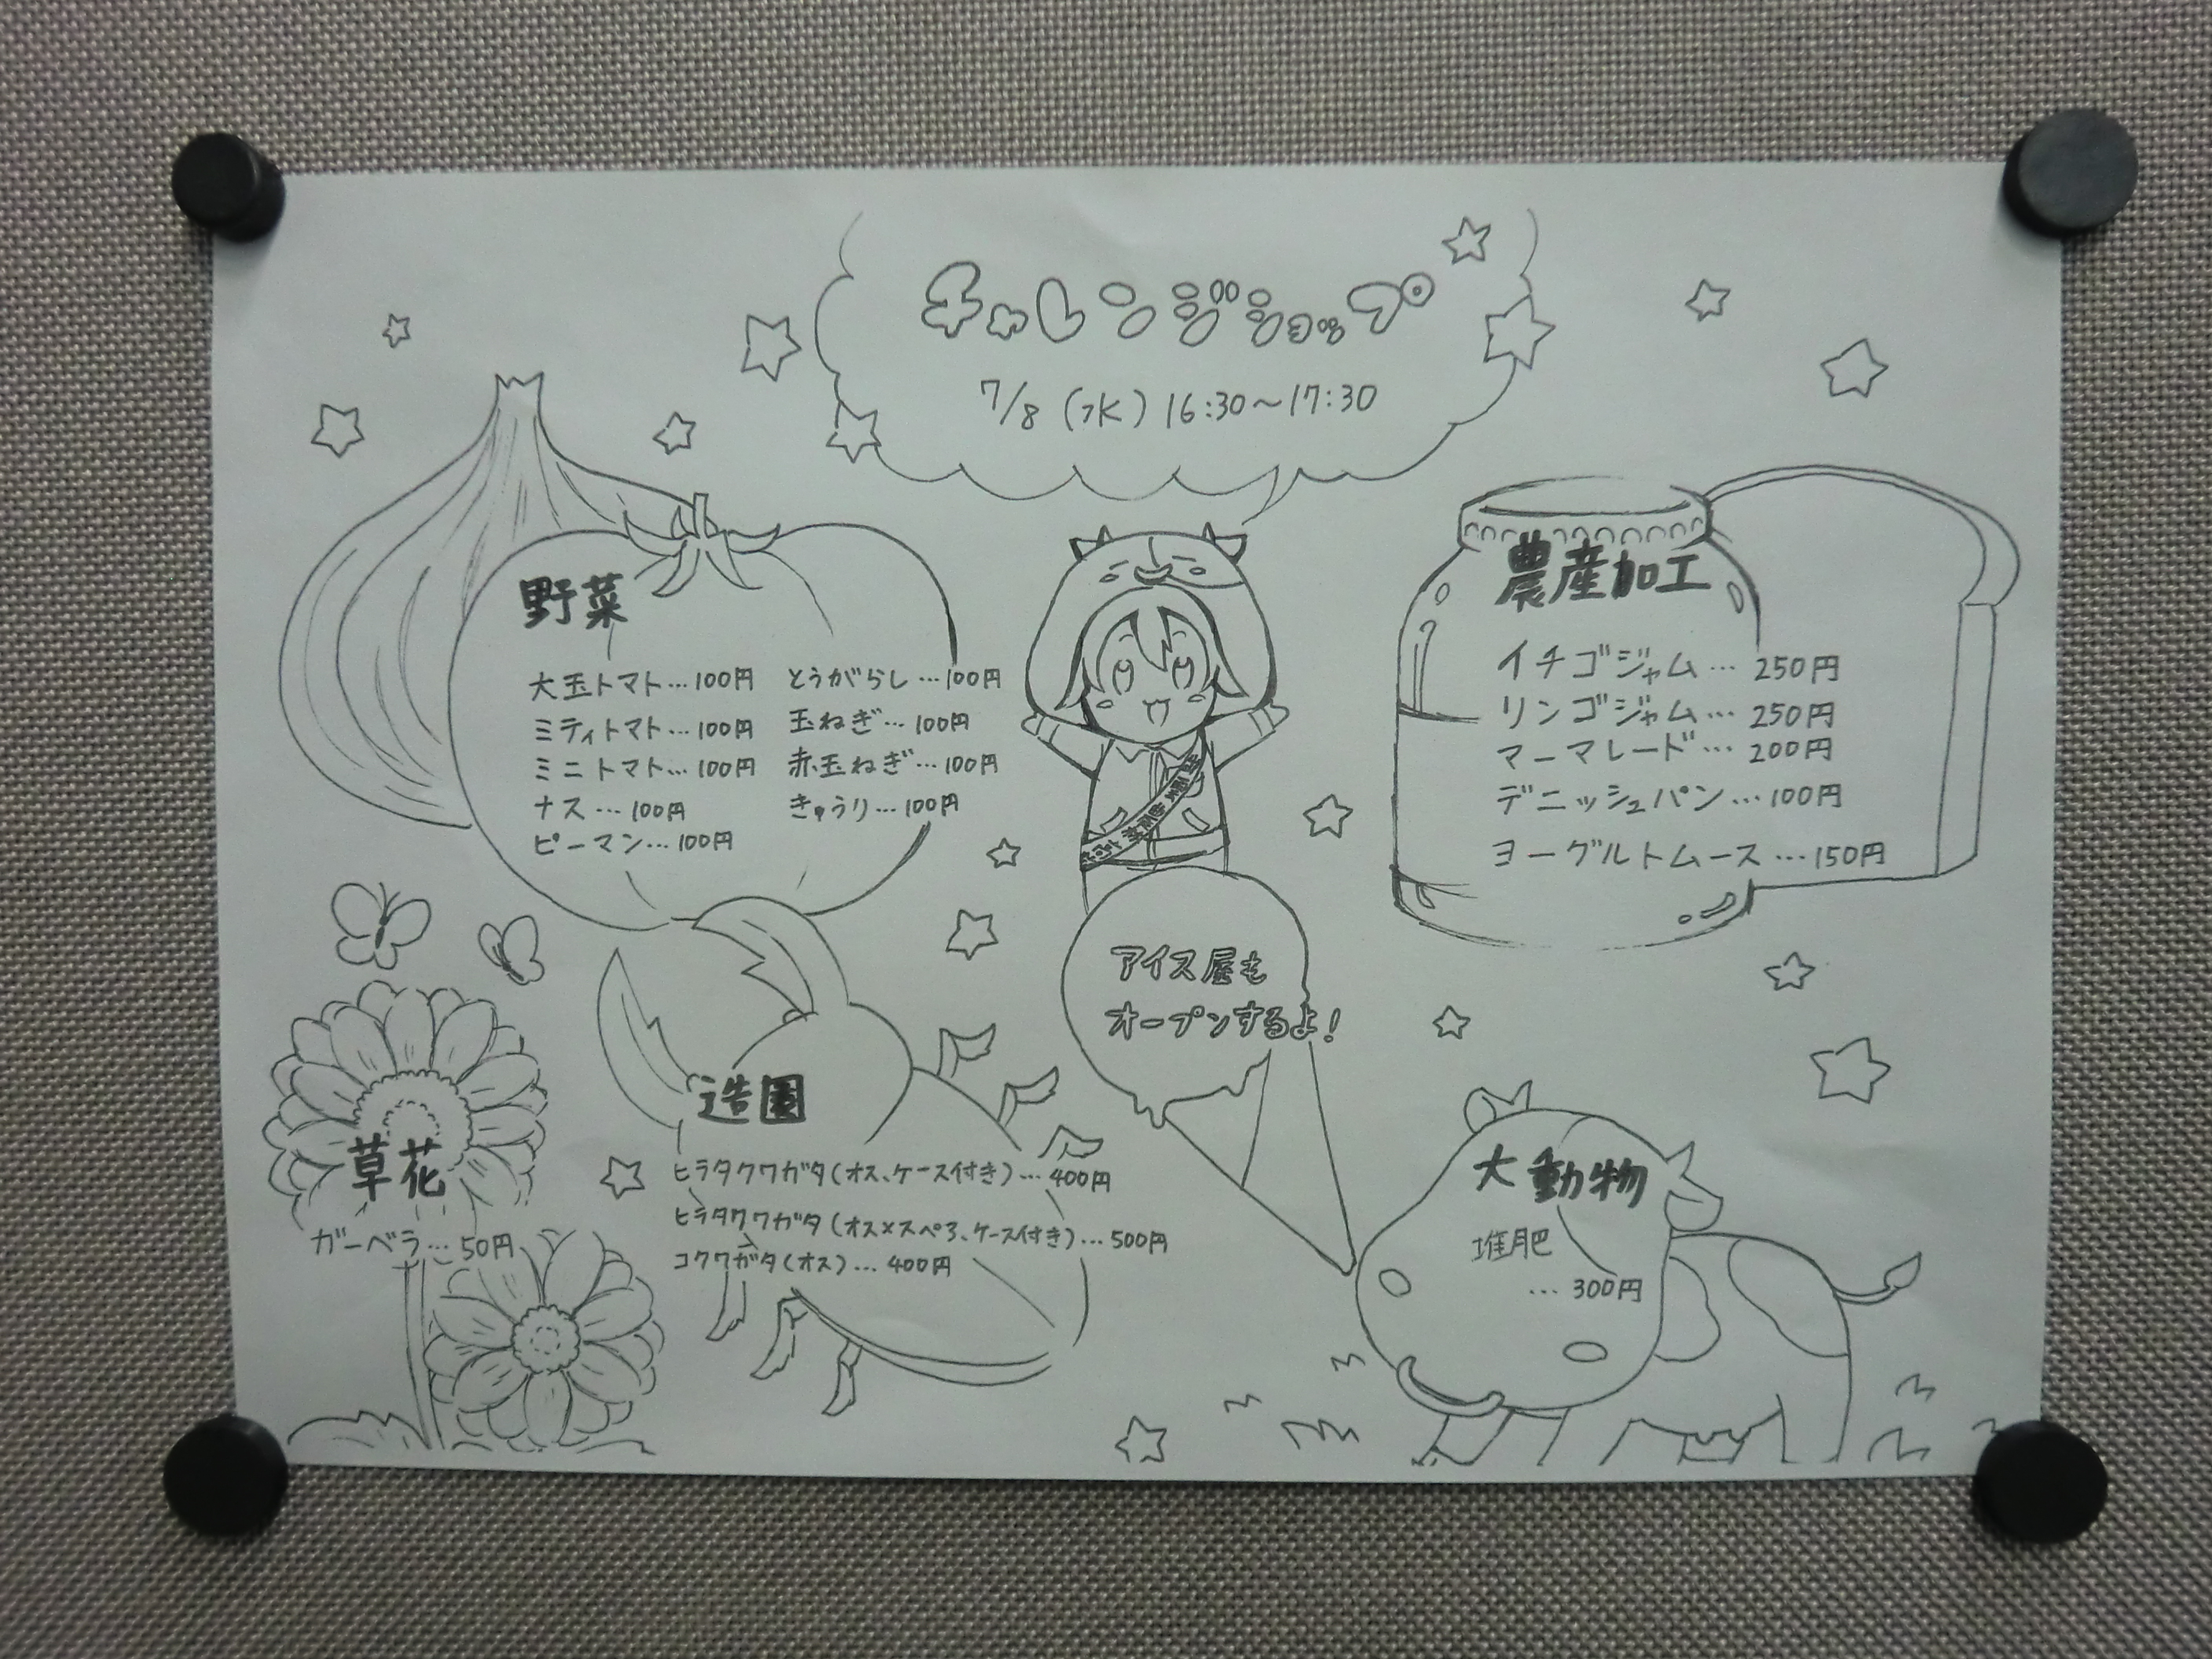 チャレンジショップ
7/8 (水) 16:30～17:30
野菜
大玉トマト…100円
ミディトマト…100円
ミニトマト…100円
ナス…100円
ピーマン…100円
とうがらし…100円
玉ねぎ…100円
赤玉ねぎ…100円
きゅうり…100円
農産加工
イチゴジャム…250円
リンゴジャム…250円
マーマレード…200円
デニッシュパン…100円
ヨーグルトムース…150円
アイス屋も
オープンするよ！
草花
ガーベラ…50円
造園
ヒラタクワガタ(オス、ケース付き)…400円
ヒラタクワガタ(オス×スペア、ケース付き)…500円
コクワガタ(オス)…400円
大動物
堆肥
…300円